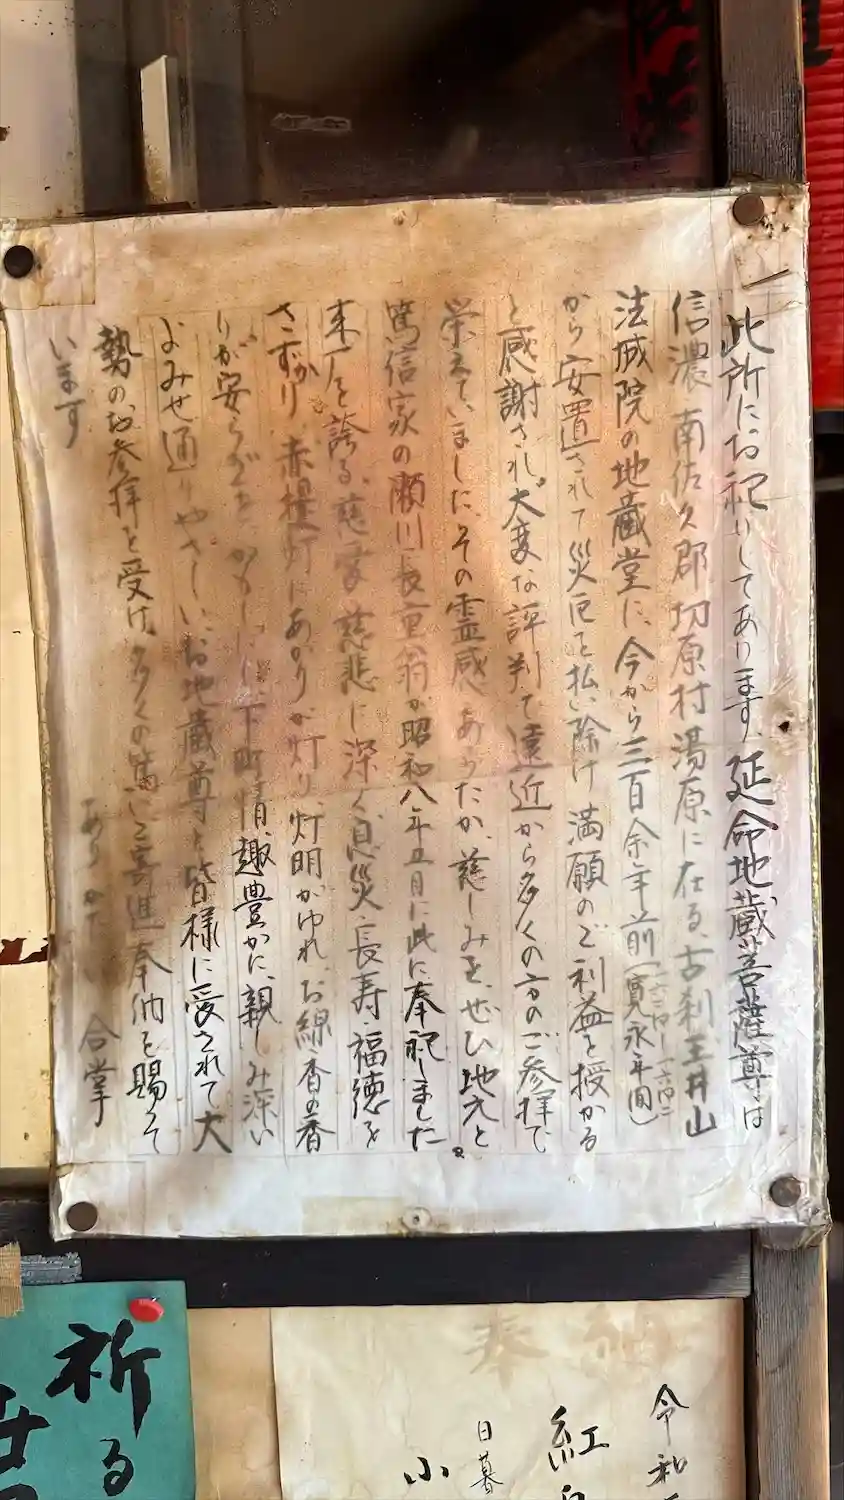 此所にお祀りしてあります、延命地蔵菩薩尊は
信濃南佐久郡切原村湯原に在る、古刹王井山
法城院の地蔵堂に、今から三百余年前(寛永年間)
一六二四ー一六四二
から安置されて災厄を払い除け満願のご利益を授かる
と感謝され、大変な評判で遠近から多くの方のご参拝で
栄えていました、その霊感あらたか、慈しみを、ぜひ地元と
篤信家の瀬川長重翁が昭和八年五月に此に奉祀しました。
来を誇る、慈愛慈悲に深く息災・長寿・福徳を
さずかり、赤提灯にあかりが灯り、灯明がゆれ、お線香の香
りが安らぎをかもしだし、下町情趣豊かに、親しみ深い
よみせ通りやさしい、お地蔵尊と皆様に愛されて大
勢のお参拝を受け、多くの篤いご寄進奉納を賜って
います
ありがたい 合掌
祈る
奉納
令和
紅
日暮
小